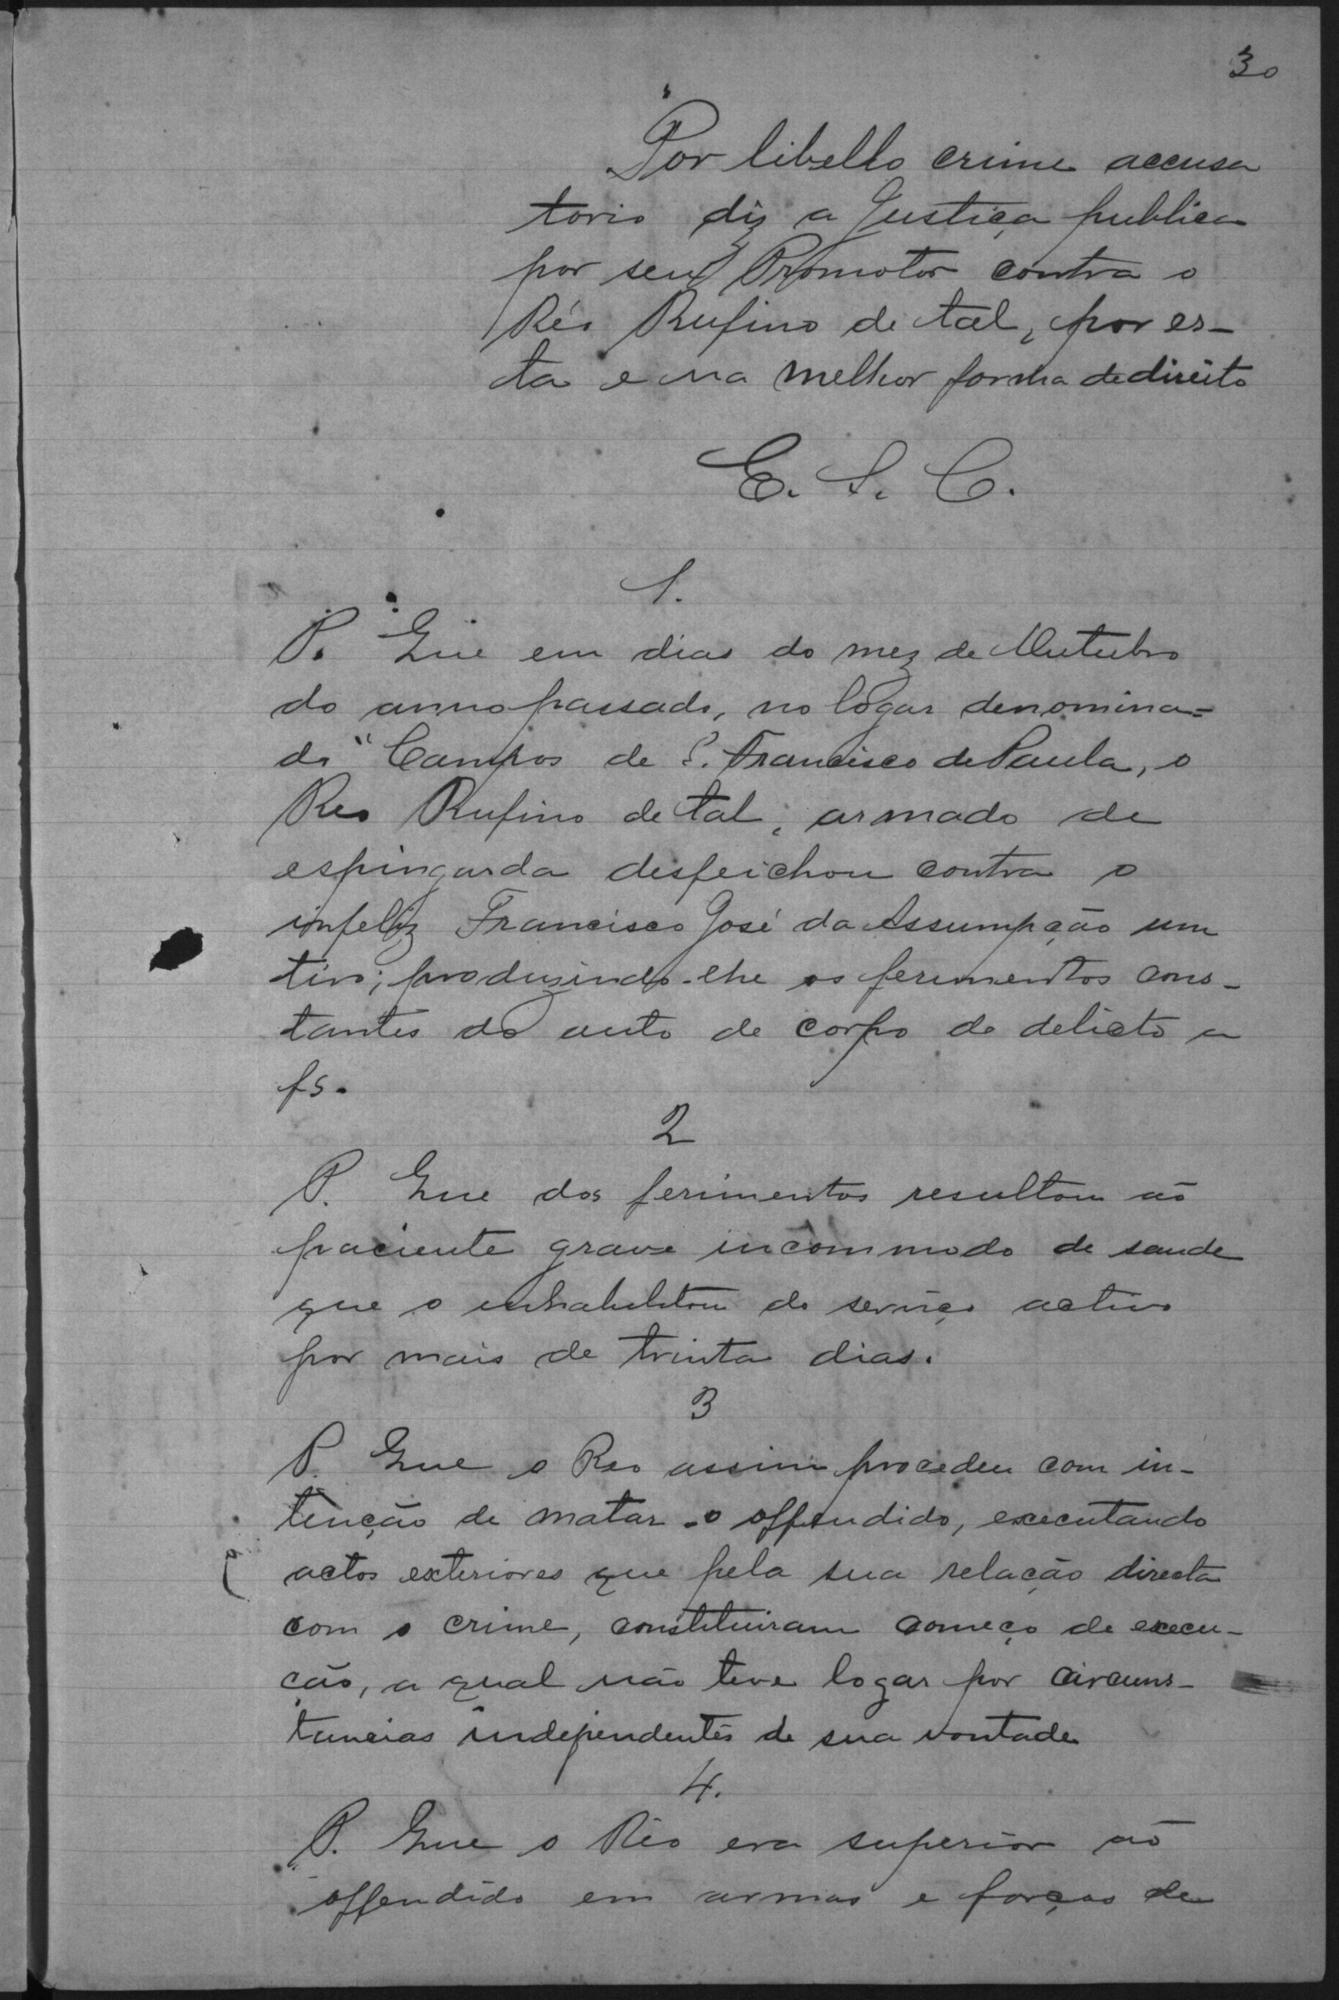 30
Por libello crime accusa
torio diz a Justiça publica
por seu Promotor contra o
Réo Rufino de tal, por es-
ta e na melhor forma de direito
E. S. C.
1.
P. Que em dias do mez de Outubro
do anno passado, no logar denomina=
do "Campos de S. Francisco de Paula, o
Reo Rufino de tal, armado de
espingarda desfeichou contra o
infeliz Francisco José da Assumpção um
tiro; produzindo-lhe os ferimentos cons-
tantes do auto de corpo de delicto a
fs.
2
P. Que dos ferimentos resultou ao
paciente grave incommodo de saude
que o inhabilitou do serviço activo
por mais de trinta dias.
3
P. Que o Reo assim procedeu com in-
tenção de matar o offendido, executando
actos exteriores que pela sua relação directa
com o crime, constituiram começo de execu-
ção, a qual não teve logar por circums-
tancias independentes de sua vontade
4.
P. Que o Réo era superior ao
offendido em armas e forças de